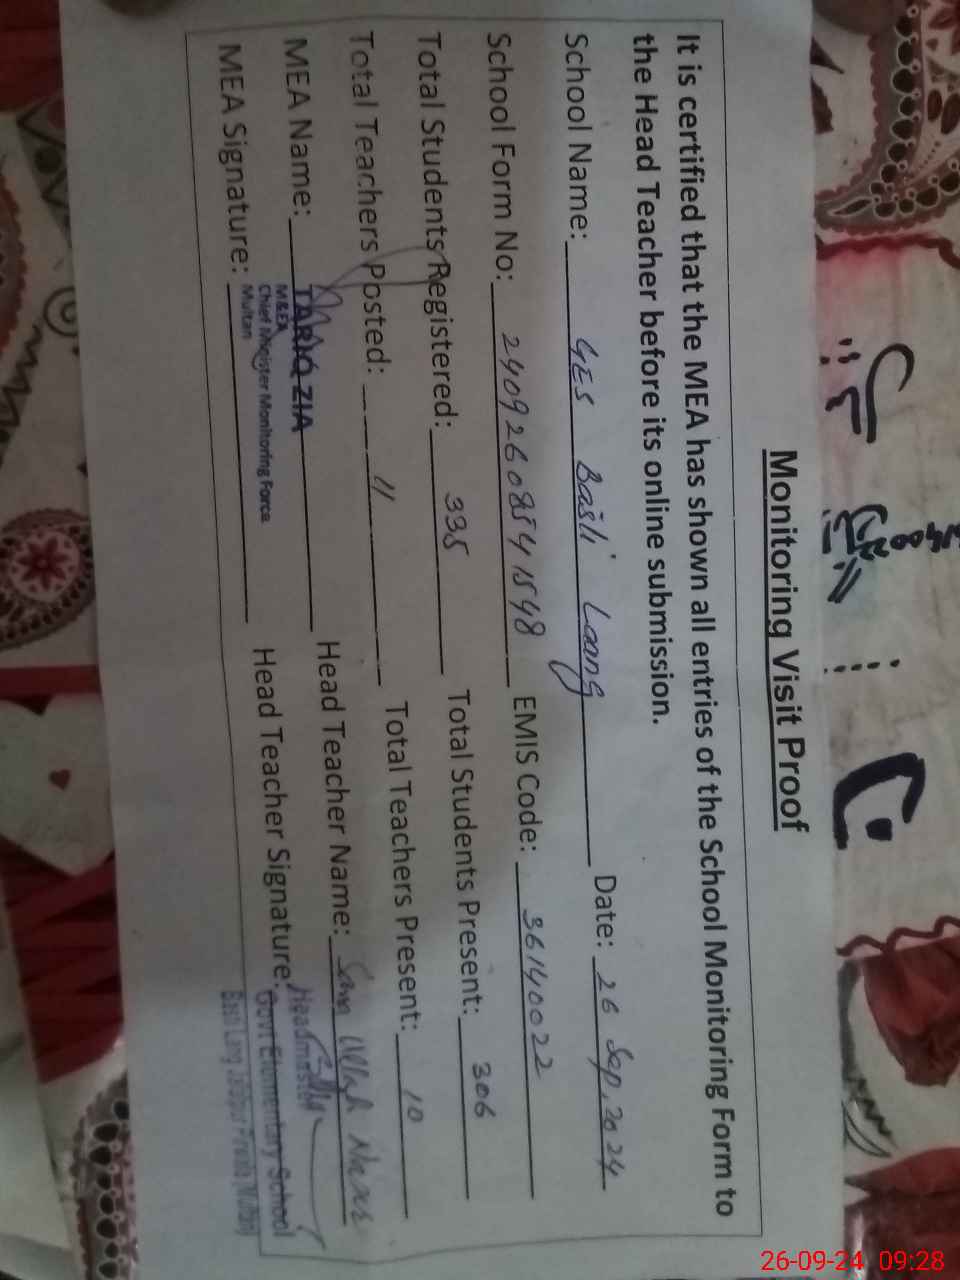 Monitoring Visit Proof
It is certified that the MEA has shown all entries of the School Monitoring Form to
the Head Teacher before its online submission.
School Name: GES Basti Laang Date: 26 Sep, 2024
School Form No: 24092608541548 EMIS Code: 36140022
Total Students Registered: 335 Total Students Present: 306
Total Teachers Posted: 11 Total Teachers Present: 10
MEA Name: TARIQ ZIA Head Teacher Name: Sana Ullah
M&EA
Chief Minister Monitoring Force
Multan
MEA Signature: Head Teacher Signature:
Headmaster
Govt Elementary School
Basti Lang
26-09-24 09:28